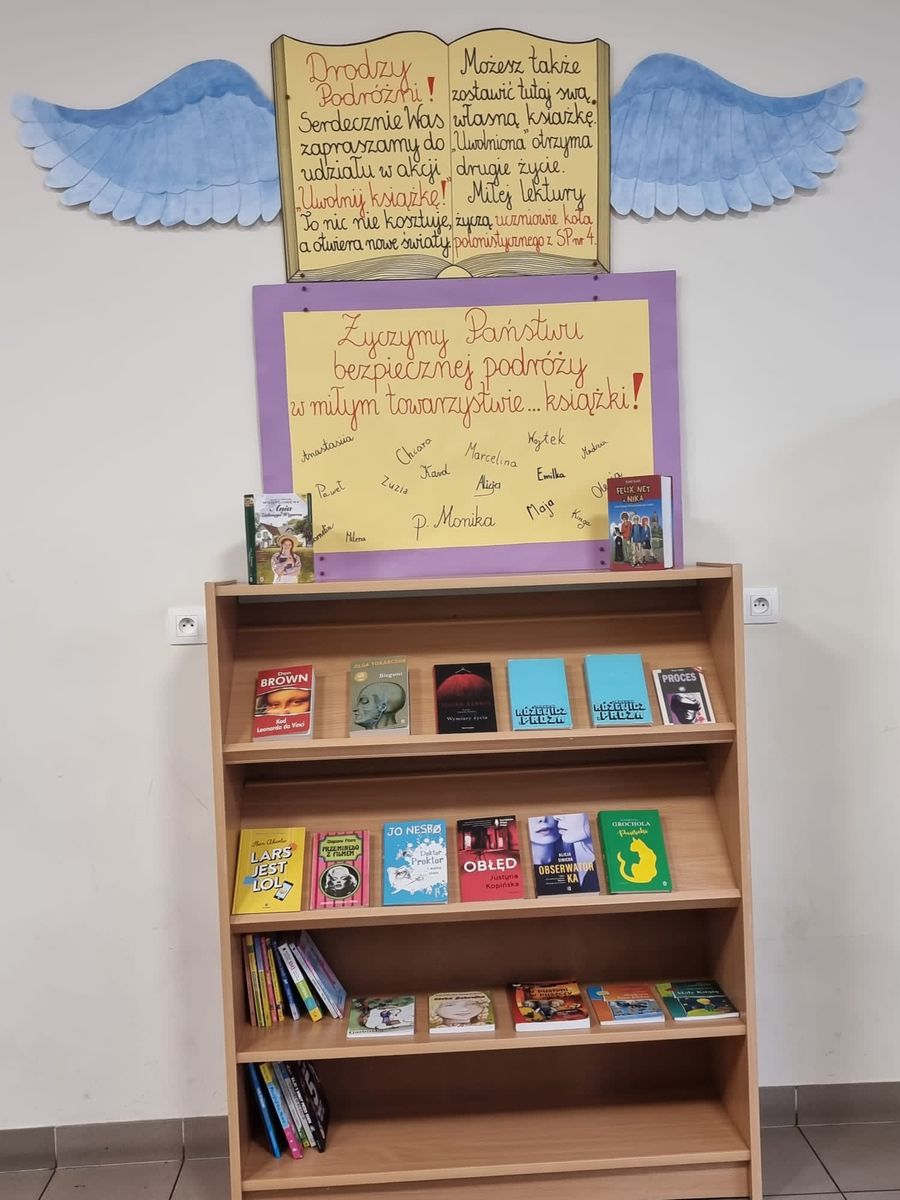 Drodzy
Podróżni!
Serdecznie Was
zapraszamy do
udziału w akcji
„Uwolnij książkę!”
To nic nie kosztuje,
a otwiera nowe światy.
Możesz także
zostawić tutaj swą
własną książkę.
„Uwolniona” otrzyma
drugie życie.
Miłej lektury
życzą uczniowie koła
polonistycznego z SP nr 4.
Życzymy Państwu
bezpiecznej podróży
w miłym towarzystwie... książki!
Anastasiia
Chiara
Wojtek
Marcelina
Karol
Emilka
Paweł
Zuzia
Alicja
Maja
Kinga
p. Monika
Milena
Ania
FELIX, NET
i NIKA
Dan
BROWN
Kod
Leonarda da Vinci
OLGA TOKARCZUK
Bieguni
Wymiary życia
RÓŻEWICZ
PROZA
RÓŻEWICZ
PROZA
PROCES
LARS
JEST
LOL
PRZEMINĘŁO
Z FILMEM
JO NESBØ
Doktor
Proktor
OBŁĘD
Justyna
Kopińska
ALICJA
SINICKA
OBSERWATOR
KA
GROCHOLA
Pustki
W PUSTYNI
W PUSZCZY
Mały Książę